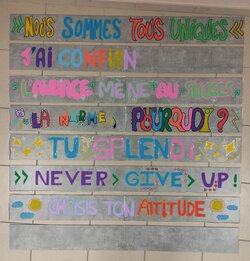 >> NOUS SOMMES TOUS UNIQUES <<
J'AI CONFIAN
L'AUDACE MÈNE AU SUCCÈS
LA NORME, POURQUOI ?
TU SPLENDI
>> NEVER > GIVE > UP!
CHOISIS TON ATTITUDE